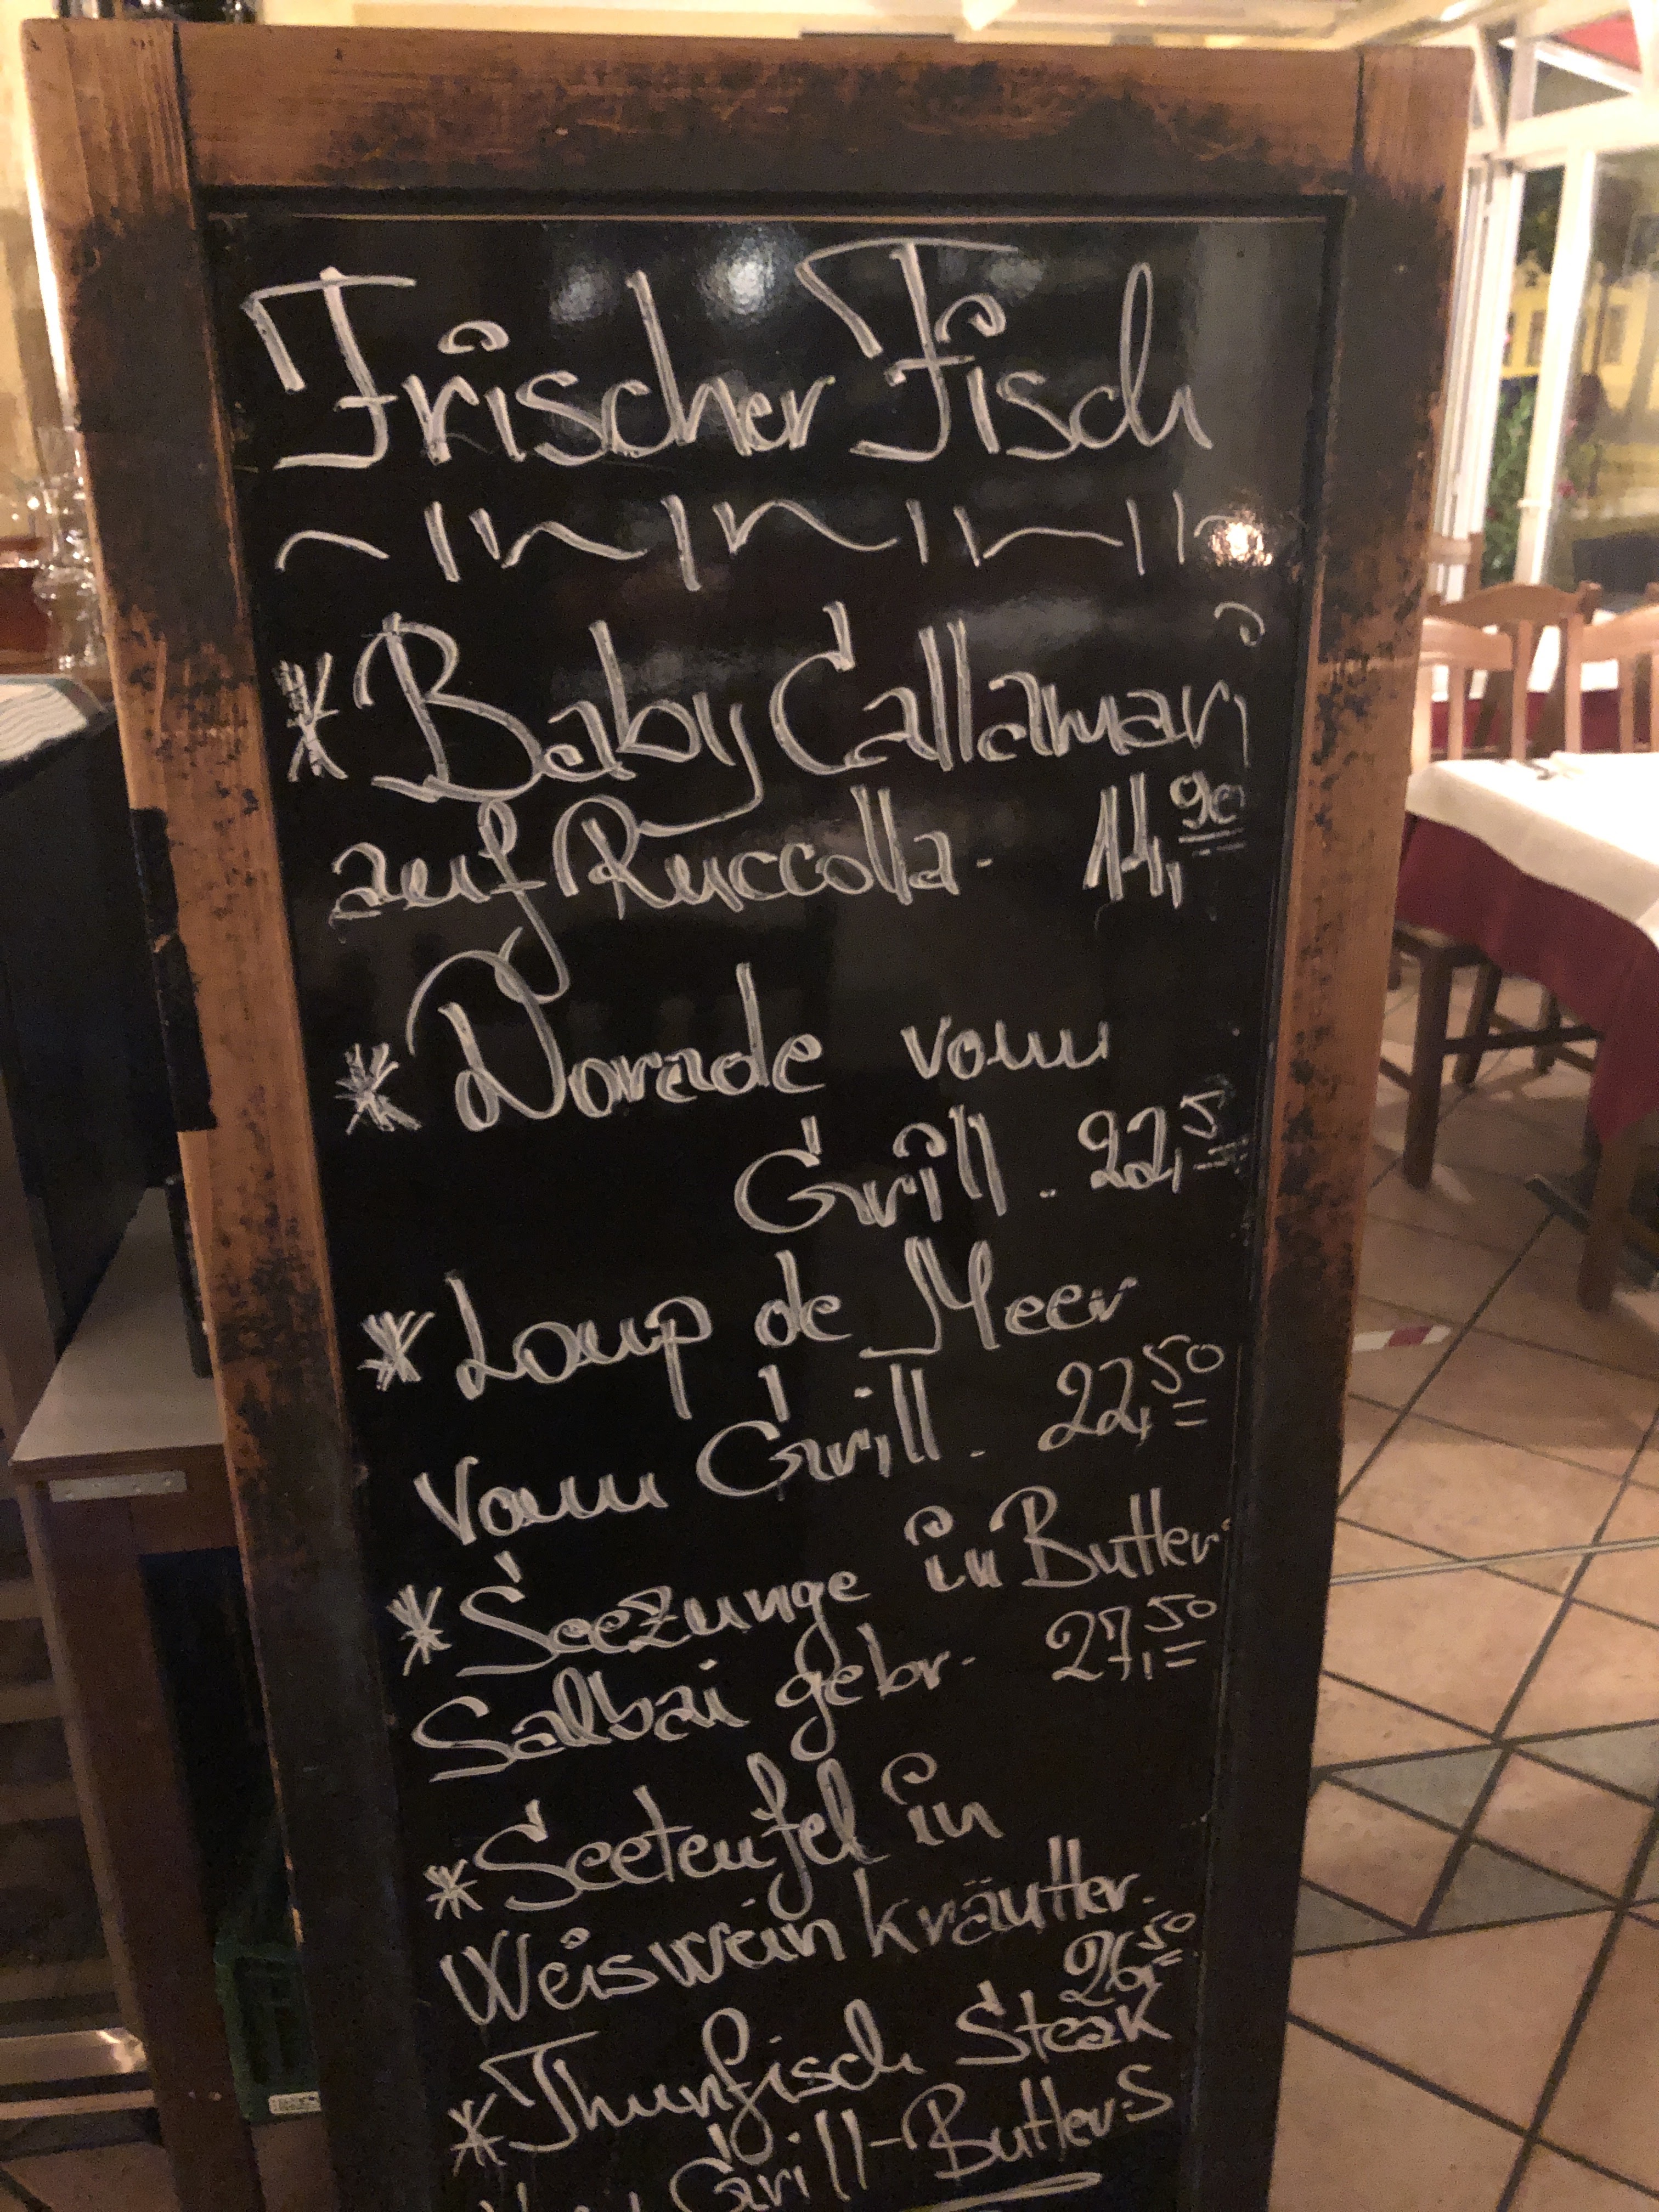 Frischer Fisch
* Baby Callamari
auf Ruccolla - 14,90
* Dorade vom
Grill - 22,5
* Loup de Meer
vom Grill - 22,50
* Seezunge in Butter
Salbai gebr - 27,50
* Seeteufel in
Weiswein kräutter -
26,50
* Thunfisch Steak
Grill-Butter-S